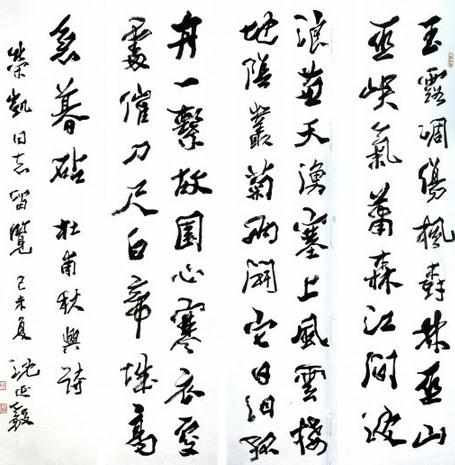 玉露凋傷楓樹林巫山
巫峽氣蕭森江間波
浪兼天湧塞上風雲接
地陰叢菊兩開它日淚孤
舟一繫故園心寒衣處
處催刀尺白帝城高
急暮砧 杜甫秋興詩
榮凱同志留覽 己未夏 沈延毅